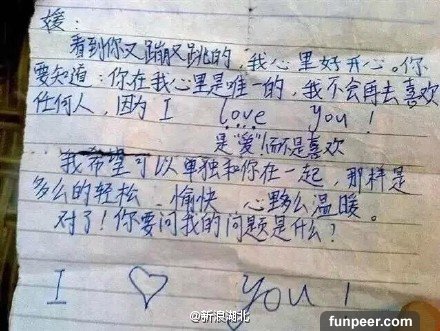 媛：
看到你又蹦又跳的，我心里好开心。你
要知道：你在我心里是唯一的，我不会再去喜欢
任何人，因为 I love you！
是“爱”而不是喜欢
我希望可以单独和你在一起，那样是
多么的轻松、愉快 心多么温暖。
对了！你要问我的问题是什么？
I ♡ you！
@新浪湖北
funpeer.com